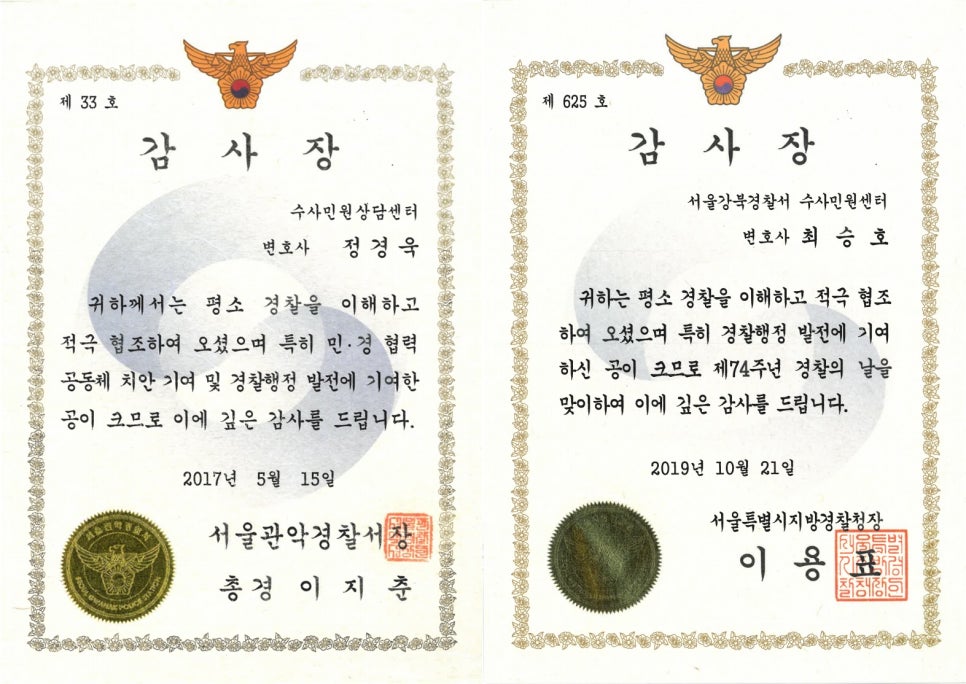 제 33 호
감 사 장
수사민원상담센터
변호사 정경욱
귀하께서는 평소 경찰을 이해하고
적극 협조하여 오셨으며 특히 민·경 협력
공동체 치안 기여 및 경찰행정 발전에 기여한
공이 크므로 이에 깊은 감사를 드립니다.
2017년 5월 15일
서울관악경찰서장
총경 이 지 춘
제 625 호
감 사 장
서울강북경찰서 수사민원센터
변호사 최 승 호
귀하는 평소 경찰을 이해하고 적극 협조
하여 오셨으며 특히 경찰행정 발전에 기여
하신 공이 크므로 제74주년 경찰의 날을
맞이하여 이에 깊은 감사를 드립니다.
2019년 10월 21일
서울특별시지방경찰청장
이 용 표